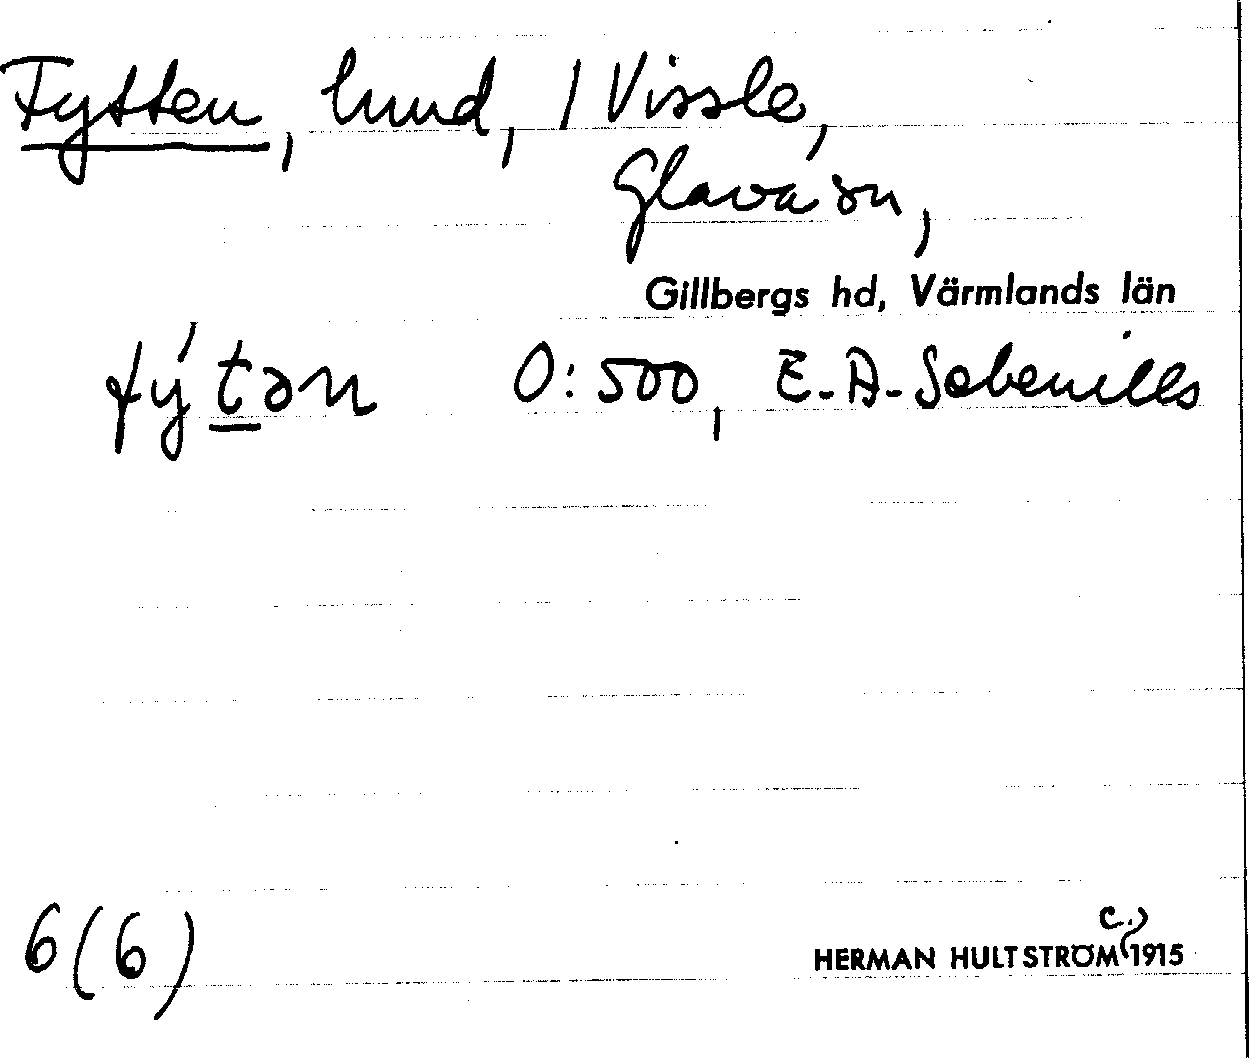 Fytten, hund, / Vissle,
Glava sn,
Gillbergs hd, Värmlands län
fýtən 0:500, E. A.
6(6)
c.)
HERMAN HULTSTRÖM 1915